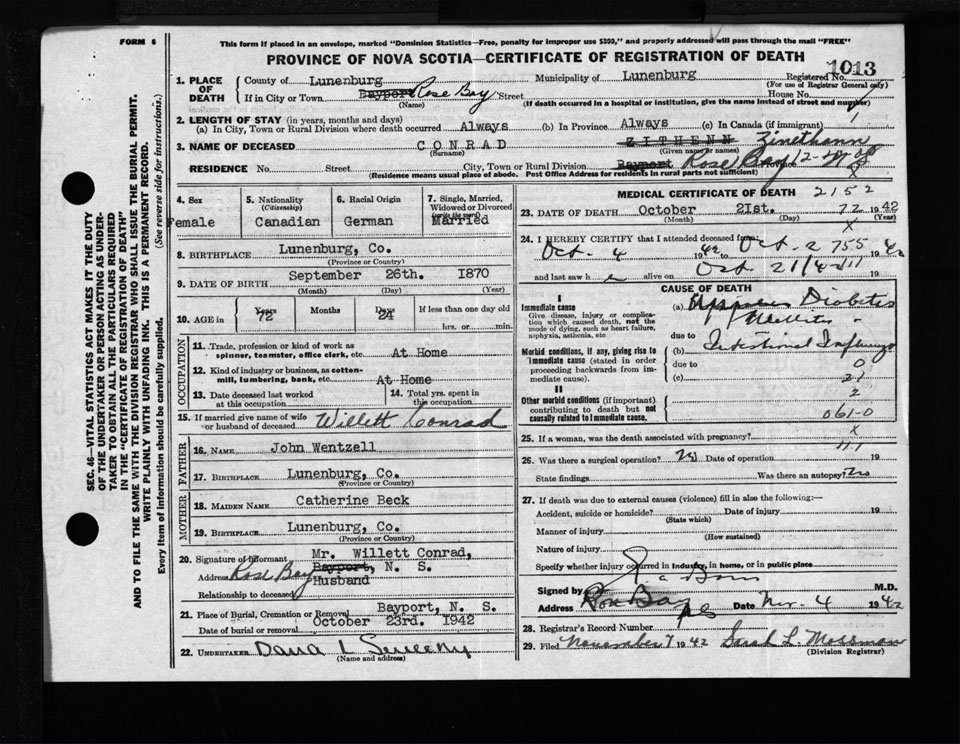 FORM 6
This form if placed in an envelope, marked "Dominion Statistics—Free, penalty for improper use $300," and properly addressed will pass through the mail "FREE"
PROVINCE OF NOVA SCOTIA—CERTIFICATE OF REGISTRATION OF DEATH
1013
SEC. 46—VITAL STATISTICS ACT MAKES IT THE DUTY
OF THE UNDERTAKER OR PERSON ACTING AS UNDER-
TAKER TO OBTAIN ALL THE PARTICULARS REQUIRED
IN THE "CERTIFICATE OF REGISTRATION OF DEATH"
AND TO FILE THE SAME WITH THE DIVISION REGISTRAR WHO SHALL ISSUE THE BURIAL PERMIT.
WRITE PLAINLY WITH UNFADING INK. THIS IS A PERMANENT RECORD.
Every item of information should be carefully supplied. (See reverse side for instructions.)
1. PLACE OF DEATH
County of Lunenburg Municipality of Lunenburg Registered No.
(For use of Registrar General only)
If in City or Town Bayport Rose Bay Street House No.
(Name) (If death occurred in a hospital or institution, give the name instead of street and number)
2. LENGTH OF STAY (in years, months and days)
(a) In City, Town or Rural Division where death occurred Always (b) In Province Always (c) In Canada (if immigrant)
3. NAME OF DECEASED CONRAD ZITHENN Zinethann
(Surname) (Given name or names)
RESIDENCE No. Street City, Town or Rural Division Bayport Rose Bay Province
(Residence means usual place of abode. Post Office Address for residents in rural parts not sufficient)
4. Sex
Female
5. Nationality
(Citizenship)
Canadian
6. Racial Origin
German
7. Single, Married,
Widowed or Divorced
(write the word)
Married
8. BIRTHPLACE Lunenburg, Co.
(Province or Country)
9. DATE OF BIRTH September 26th. 1870
(Month) (Day) (Year)
10. AGE in Years 72 Months Days 24 If less than one day old
hrs. or min.
OCCUPATION
11. Trade, profession or kind of work as
spinner, teamster, office clerk, etc. At Home
12. Kind of industry or business, as cotton-
mill, lumbering, bank, etc. At Home
13. Date deceased last worked
at this occupation
14. Total yrs. spent in
this occupation
15. If married give name of wife
or husband of deceased Willett Conrad
FATHER
16. NAME John Wentzell
17. BIRTHPLACE Lunenburg, Co.
(Province or Country)
MOTHER
18. MAIDEN NAME Catherine Beck
19. BIRTHPLACE Lunenburg, Co.
(Province or Country)
20. Signature of Informant Mr. Willett Conrad,
Address Rose Bay Bayport, N. S.
Relationship to deceased Husband
21. Place of Burial, Cremation or Removal Bayport, N. S.
Date of burial or removal October 23rd. 1942
22. UNDERTAKER
(Name and address)
MEDICAL CERTIFICATE OF DEATH 2152
23. DATE OF DEATH October 21st. 72 1942
(Month) (Day) (Year)
X
24. I HEREBY CERTIFY that I attended deceased from:
Oct. 4 1942 to Oct. 2 755 1942
and last saw h e alive on Oct 21/42 111 19
CAUSE OF DEATH
I
Immediate cause
Give disease, injury or complica-
tion which caused death, not the
mode of dying, such as heart failure,
asphyxia, asthenia, etc
(a) Diabetes
Mellitus
due to
Morbid conditions, if any, giving rise to
immediate cause (stated in order
proceeding backwards from im-
mediate cause).
(b) Intestinal
due to 0
(c) 21
II
Other morbid conditions (if important)
contributing to death but not
causally related to immediate cause.
2
061-0
25. If a woman, was the death associated with pregnancy? X
111
26. Was there a surgical operation? No Date of operation 19
State findings Was there an autopsy? No
27. If death was due to external causes (violence) fill in also the following:—
Accident, suicide or homicide? Date of injury 19
(State which)
Manner of injury
(How sustained)
Nature of injury
Specify whether injury occurred in industry, in home, or in public place
Signed by M.D.
Address Rose Bay NS Date Nov. 4 1942
28. Registrar's Record Number
29. Filed November 7 1942 Sarah L Mossman
(Division Registrar)